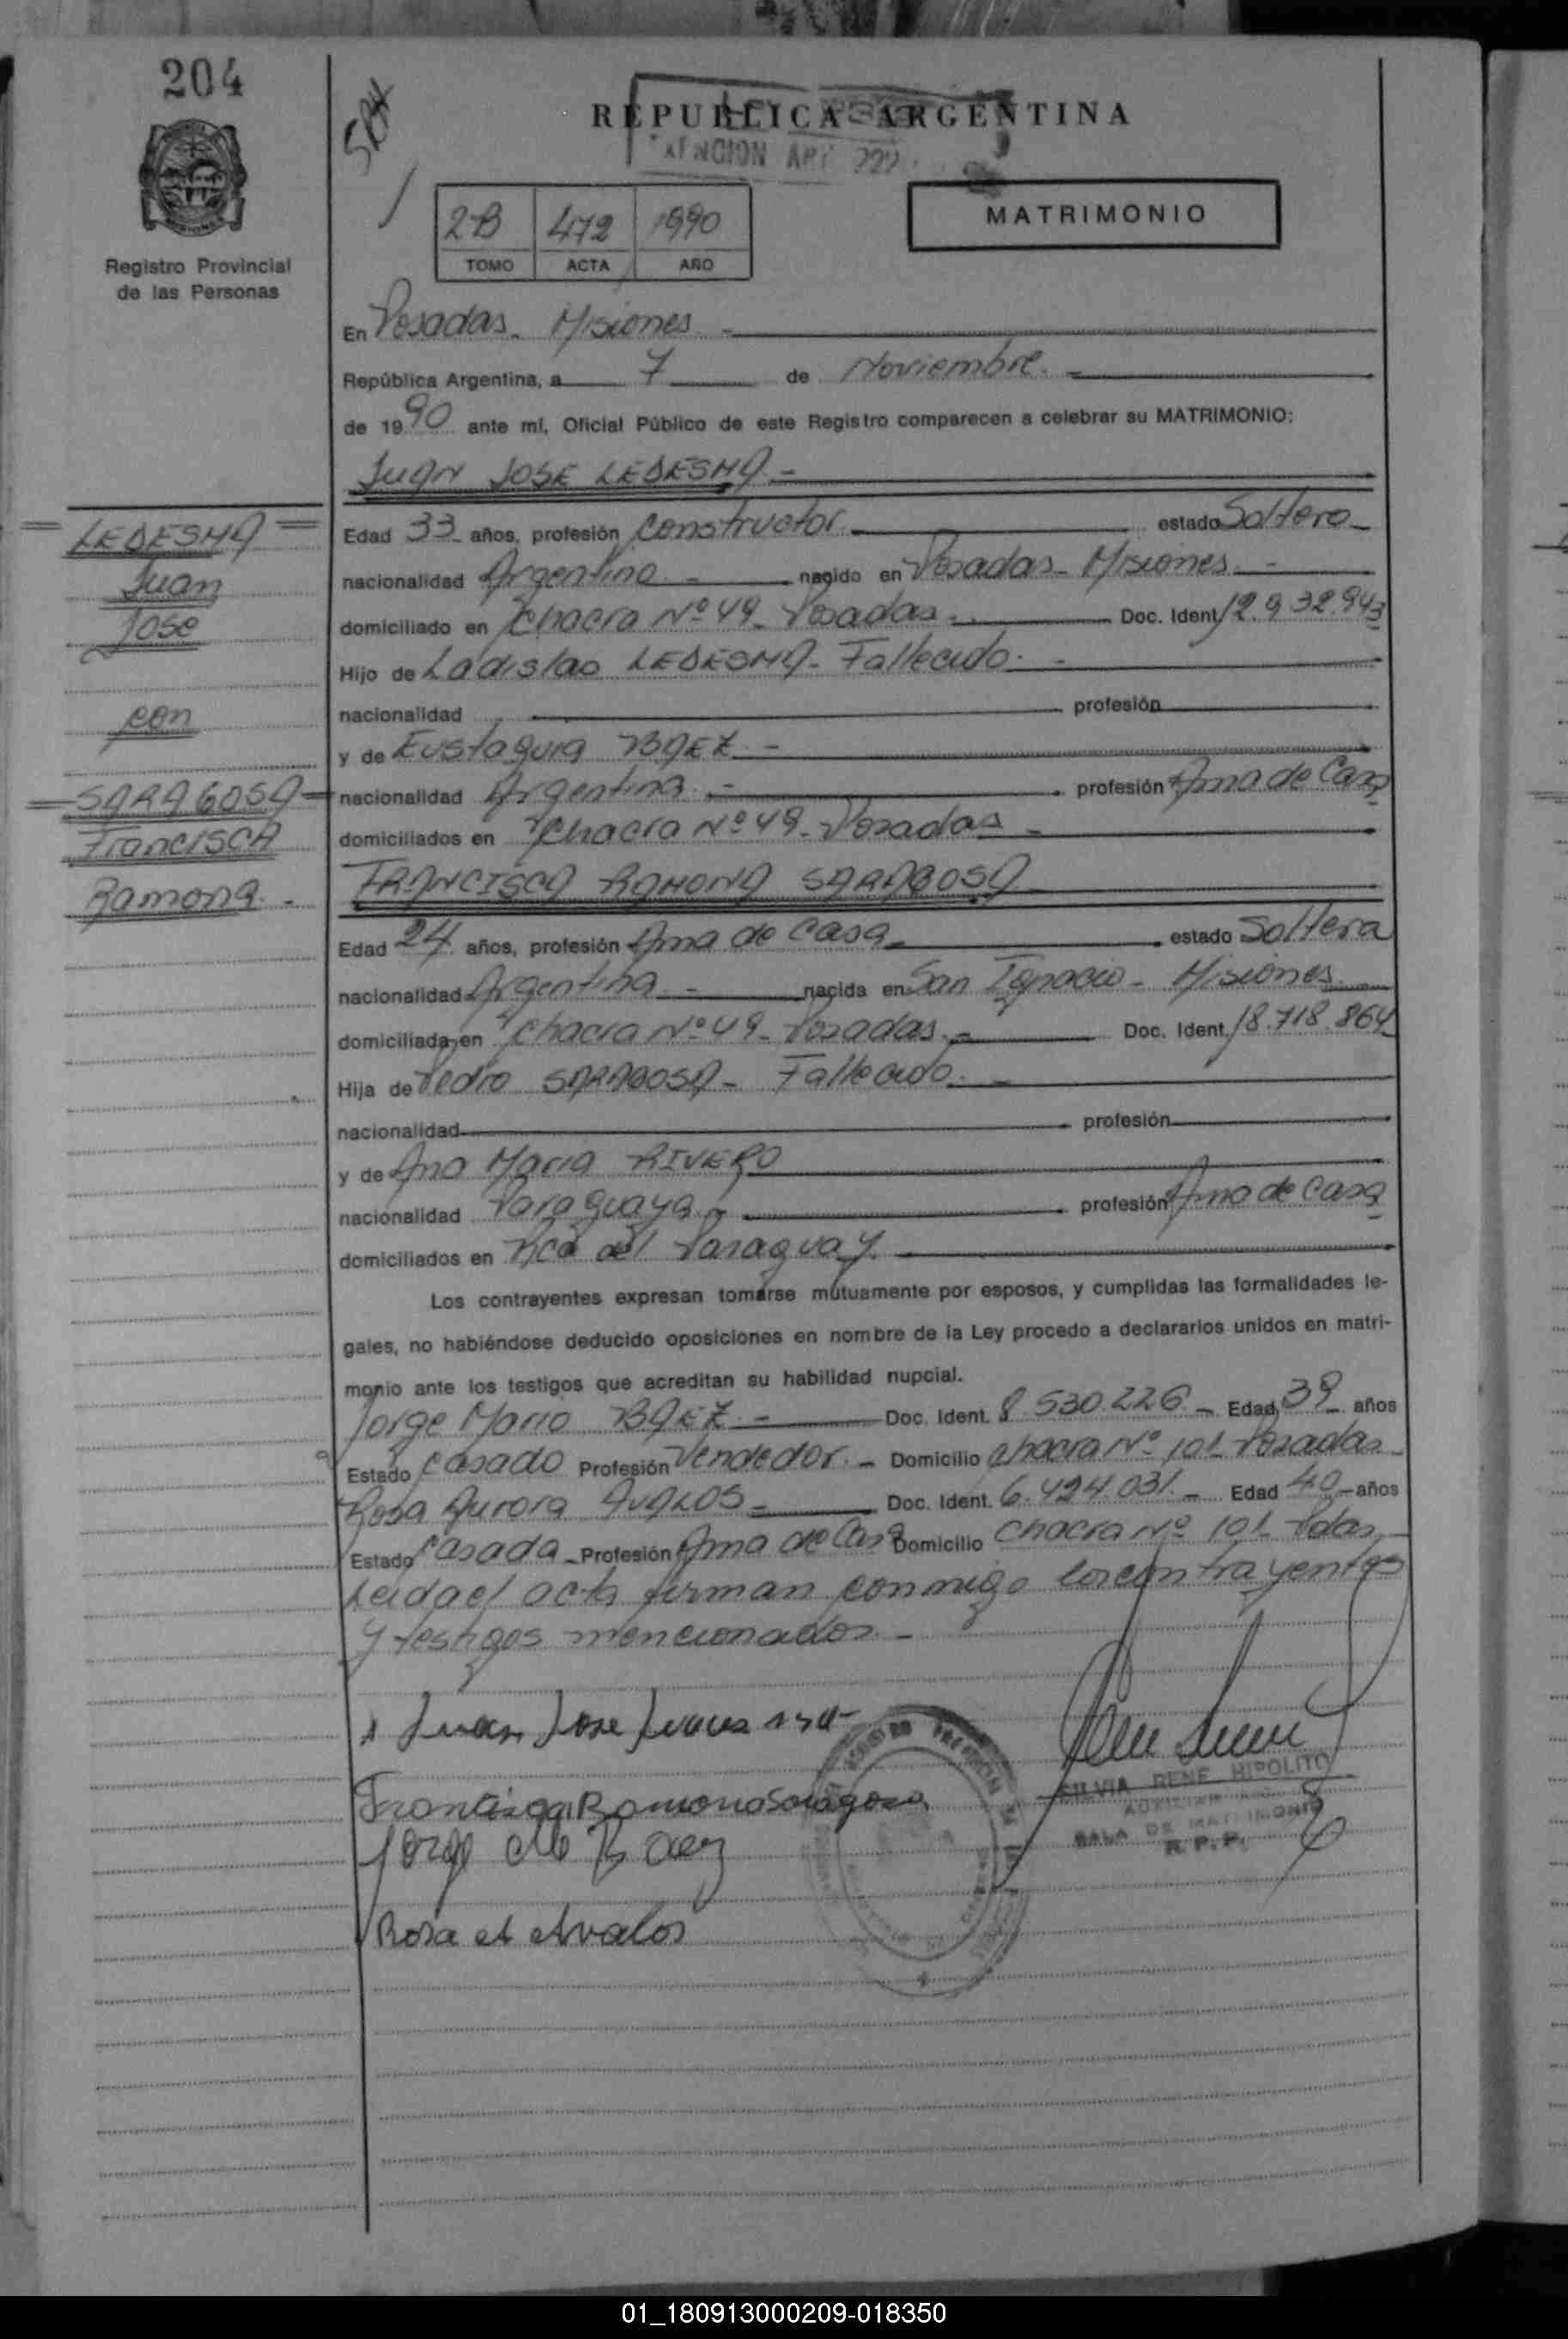 204
REPUBLICA ARGENTINA
EXENCION ART 222
MATRIMONIO
2-B 472 1990
TOMO ACTA AÑO
Registro Provincial
de las Personas
En Posadas - Misiones -
República Argentina, a 7 de Noviembre. -
de 1990 ante mí, Oficial Público de este Registro comparecen a celebrar su MATRIMONIO:
JUAN JOSE LEDESMA -
LEDESMA
Juan
Jose
con
SARAGOSA
FrancISCA
Ramona. -
Edad 33 años, profesión Constructor. estado Soltero -
nacionalidad Argentina. - nacido en Posadas - Misiones. -
domiciliado en Chacra Nº 49 - Posadas - Doc. Ident. 12.932.943
Hijo de Ladislao LEDESMA - Fallecido. -
nacionalidad profesión
y de Eustaquia BAEZ. -
nacionalidad Argentina. - profesión Ama de Casa
domiciliados en Chacra Nº 49 - Posadas -
FRANCISCA RAMONA SARAGOSA
Edad 24 años, profesión Ama de Casa estado Soltera
nacionalidad Argentina. - nacida en San Ignacio - Misiones
domiciliada en Chacra Nº 49 - Posadas. - Doc. Ident. 18.718.864
Hija de Pedro SARAGOSA - Fallecido. -
nacionalidad profesión
y de Ana Maria RIVERO
nacionalidad Paraguaya. - profesión Ama de Casa
domiciliados en Rca del Paraguay.
Los contrayentes expresan tomarse mútuamente por esposos, y cumplidas las formalidades le-
gales, no habiéndose deducido oposiciones en nombre de la Ley procedo a declararlos unidos en matri-
monio ante los testigos que acreditan su habilidad nupcial.
Jorge Mario BAEZ. - Doc. Ident. 8.530.226. - Edad 39 años
Estado Casado Profesión Vendedor. - Domicilio Chacra Nº 101 - Posadas -
Rosa Aurora AVALOS - Doc. Ident. 6.424.031. - Edad 40 años
Estado Casada - Profesión Ama de Casa Domicilio Chacra Nº 101 - Pdas -
Leida el acta firman conmigo los contrayentes
y testigos mencionados. -
Juan Jose
Francisca Ramona Saragosa
Jorge M Baez
Rosa A Avalos
SILVIA RENE HIPOLITO
AUXILIAR
SALA DE MATRIMONIO
R.P.P.
01_180913000209-018350